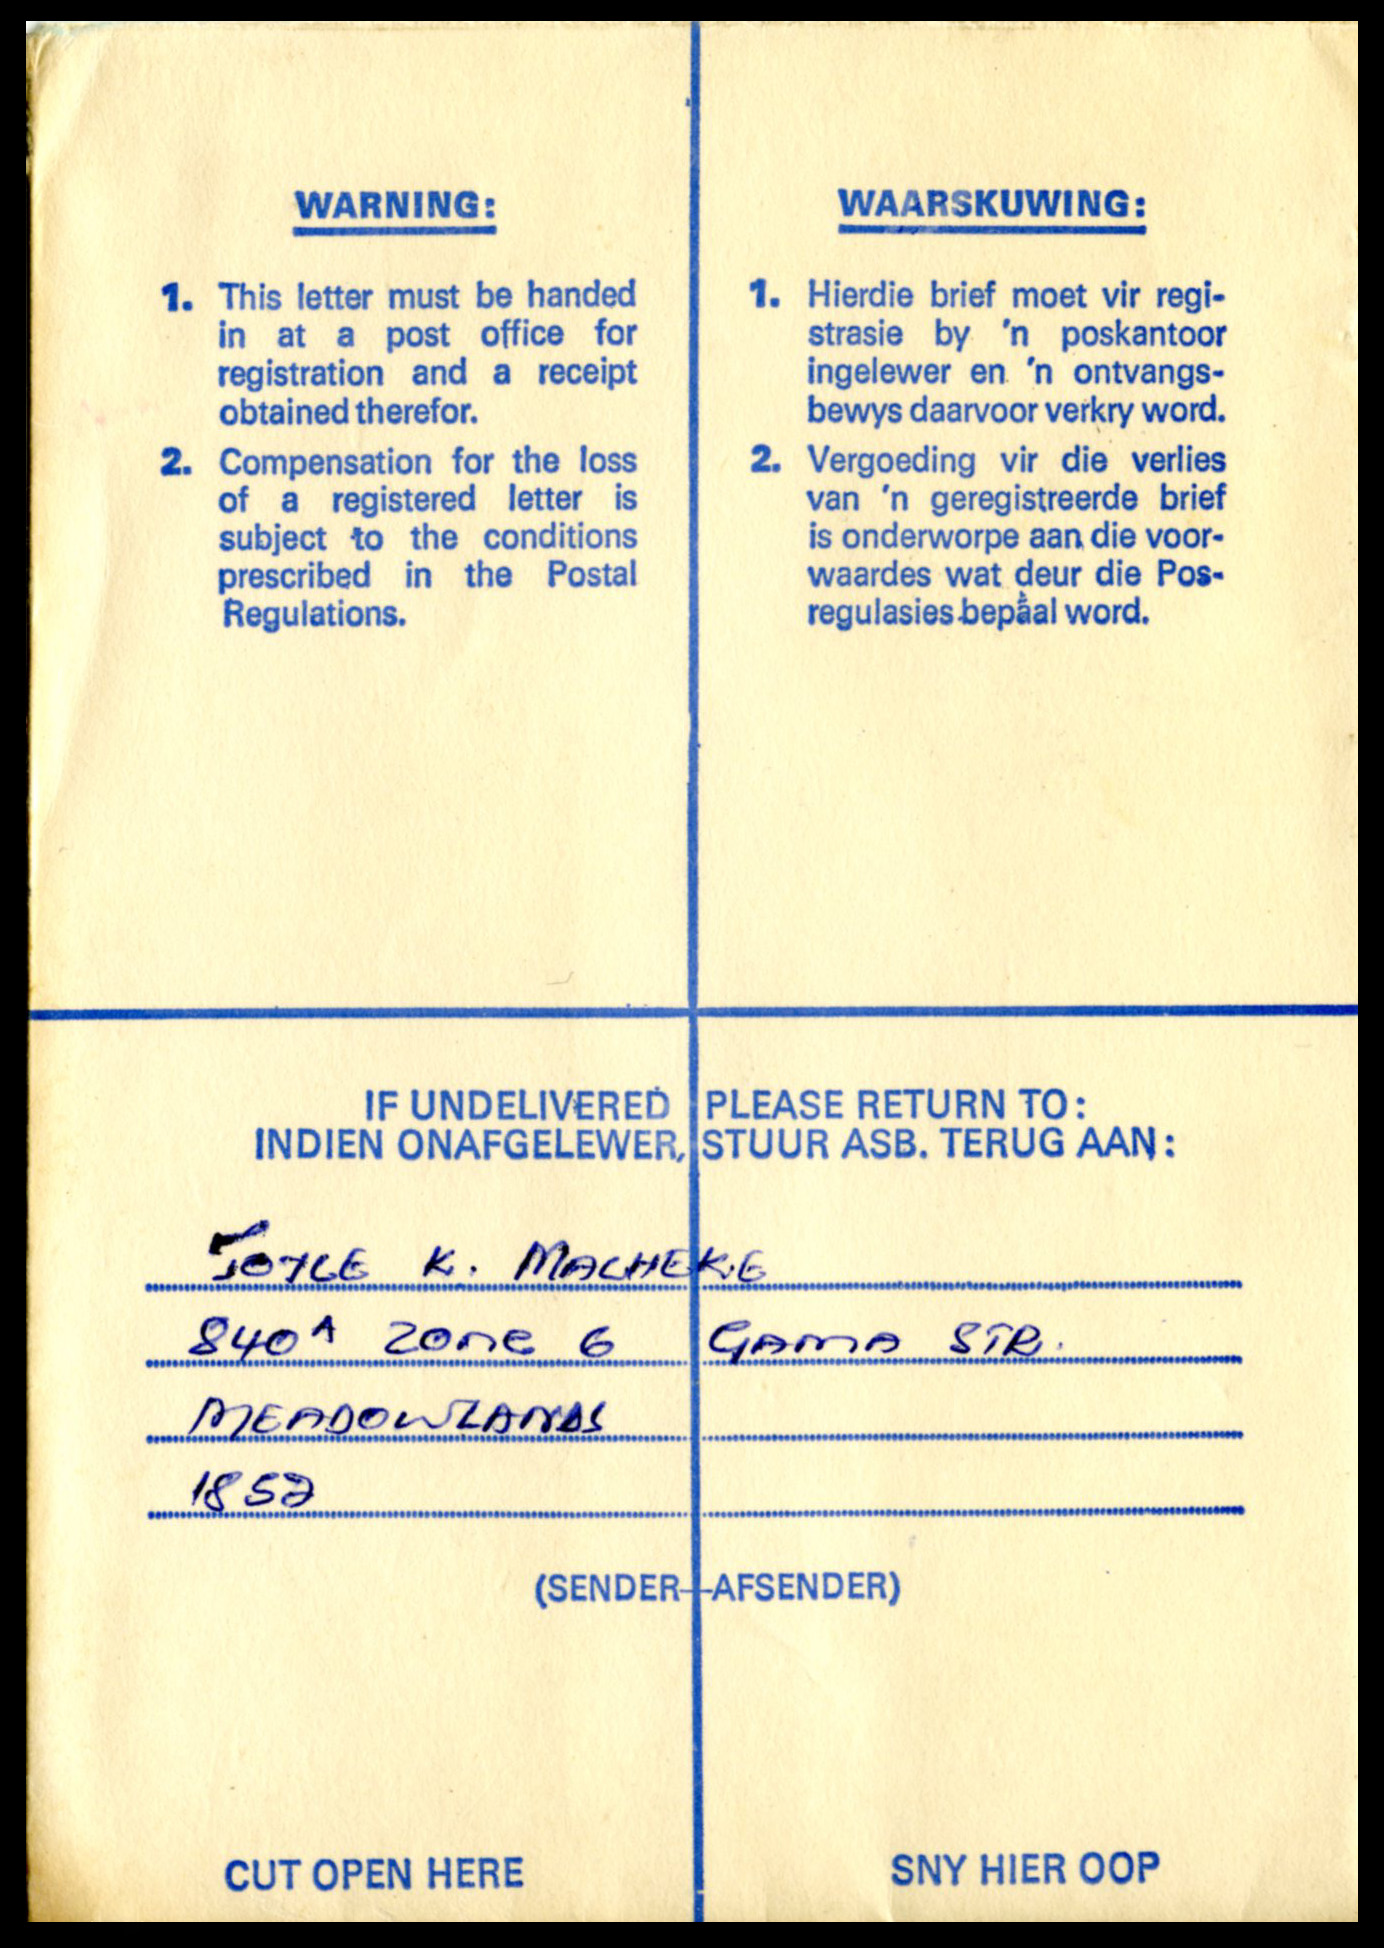 WARNING:
1. This letter must be handed
in at a post office for
registration and a receipt
obtained therefor.
2. Compensation for the loss
of a registered letter is
subject to the conditions
prescribed in the Postal
Regulations.
WAARSKUWING:
1. Hierdie brief moet vir regi-
strasie by 'n poskantoor
ingelewer en 'n ontvangs-
bewys daarvoor verkry word.
2. Vergoeding vir die verlies
van 'n geregistreerde brief
is onderworpe aan die voor-
waardes wat deur die Pos-
regulasies bepaal word.
IF UNDELIVERED PLEASE RETURN TO:
INDIEN ONAFGELEWER, STUUR ASB. TERUG AAN:
JOYCE K. MACHEKE
840A ZONE 6 GAMA STR.
MEADOWLANDS
1852
(SENDER—AFSENDER)
CUT OPEN HERE
SNY HIER OOP